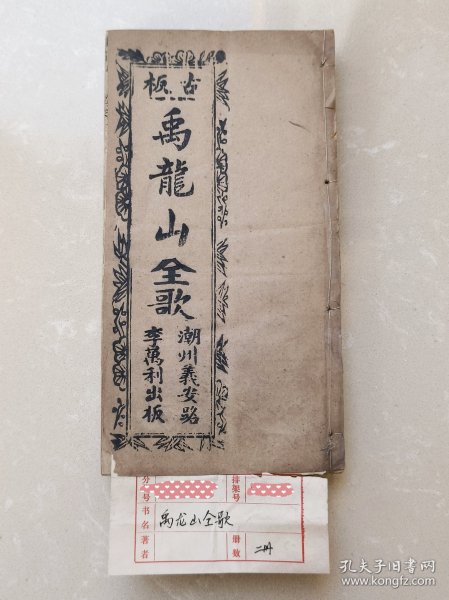 古板
禹龍山全歌
潮州義安路
李萬利出板
分类号
排架号
书名
禹龙山全歌
著者
册数
二册
孔夫子旧书网
https://www.kongfz.com/